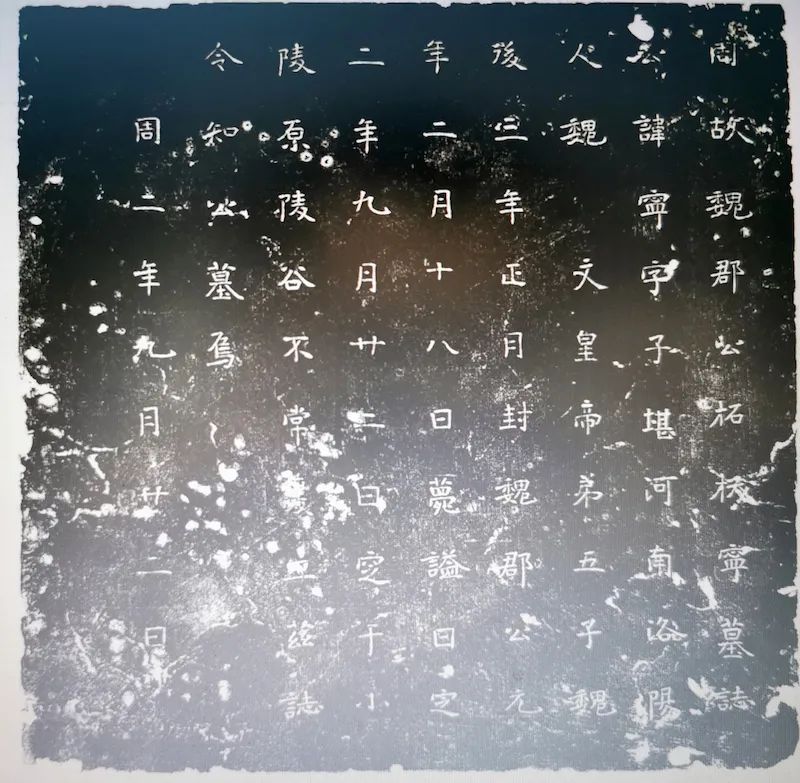 周故魏郡公柘柭寧墓誌
公諱寧字子堪河南洛陽
人魏 文皇帝弟五子魏
後三年正月封魏郡公元
年二月十八日薨謚曰定
二年九月廿二日窆于小
陵原陵谷不常立茲誌
令知公墓焉
周二年九月廿二日